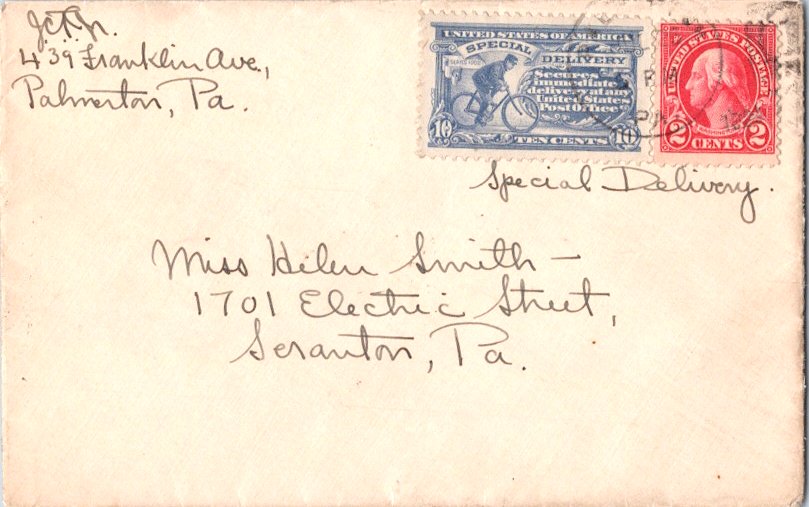 439 Franklin Ave.,
Palmerton, Pa.
UNITED STATES OF AMERICA
SPECIAL DELIVERY
SERIES 1902
Secures
immediate
delivery at any
United States
Post Office
10 TEN CENTS 10
UNITED STATES POSTAGE
WASHINGTON
2 CENTS 2
Special Delivery.
Miss Helen Smith –
1701 Electric Street,
Scranton, Pa.